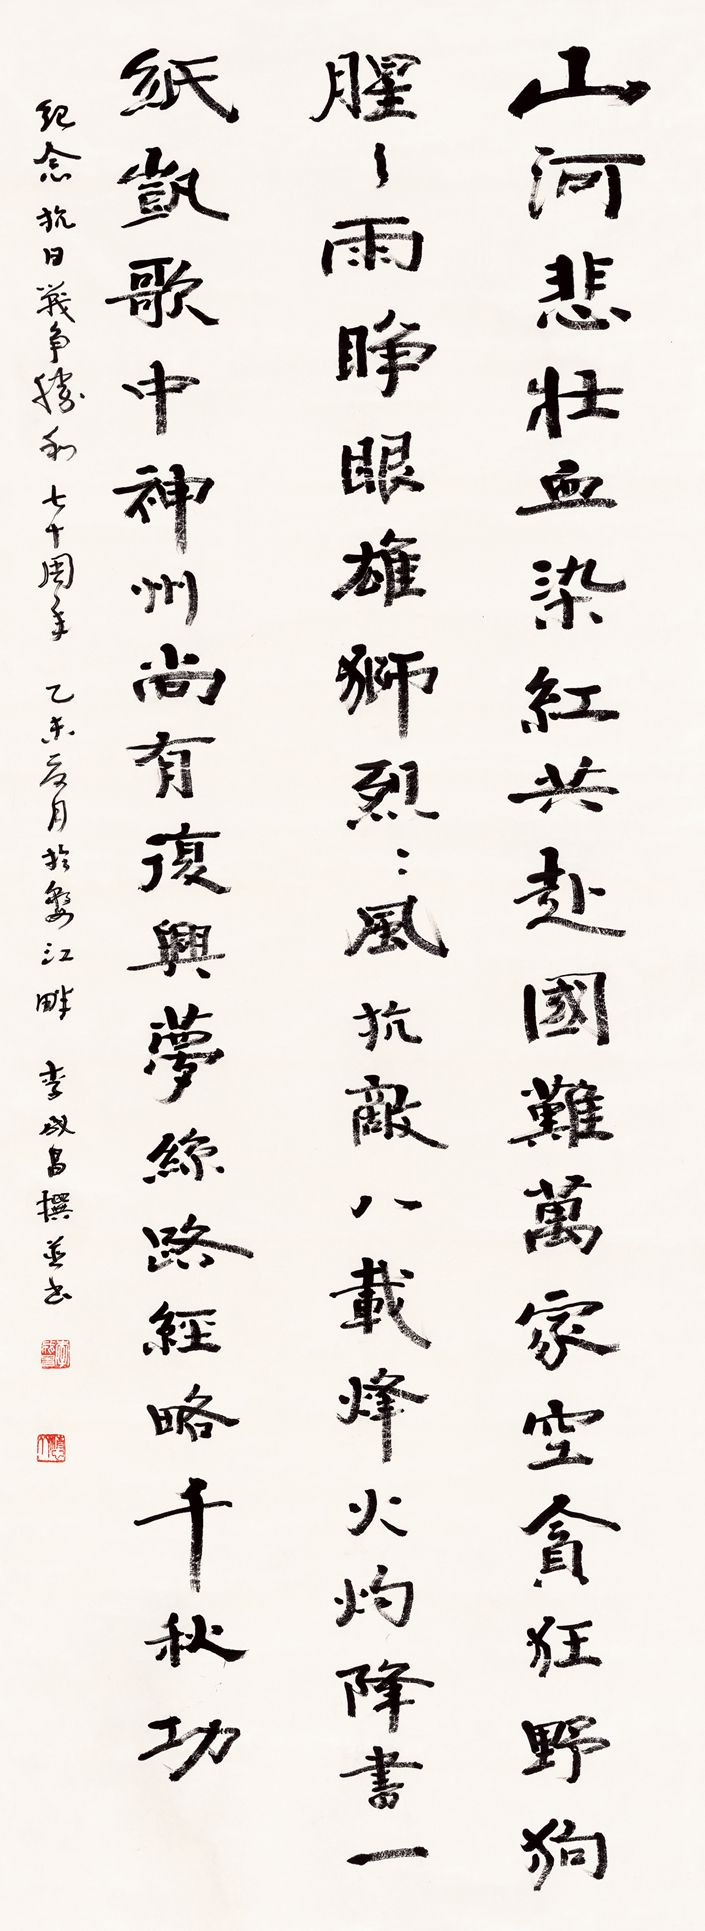 山河悲壯血染紅共赴國難萬家空貪狂野狗
腥〻雨睜眼雄獅烈〻風抗敵八載烽火灼降書一
紙凱歌中神州尚有復興夢絲路經略千秋功
紀念抗日戰爭勝利七十周年 乙未夏月於婁江畔 李成昌撰並書